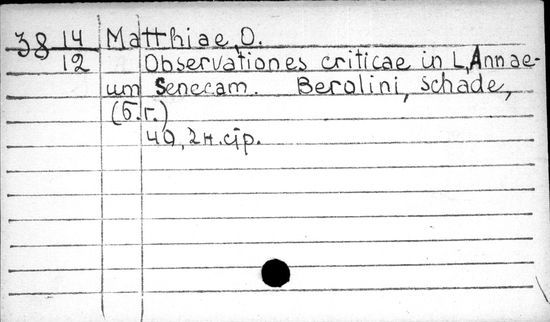 38 14/12 Matthiae, O.
Observationes criticae in L. Annae-
um Senecam. Berolini, Schade,
(б.г.)
40, 2 н. стр.